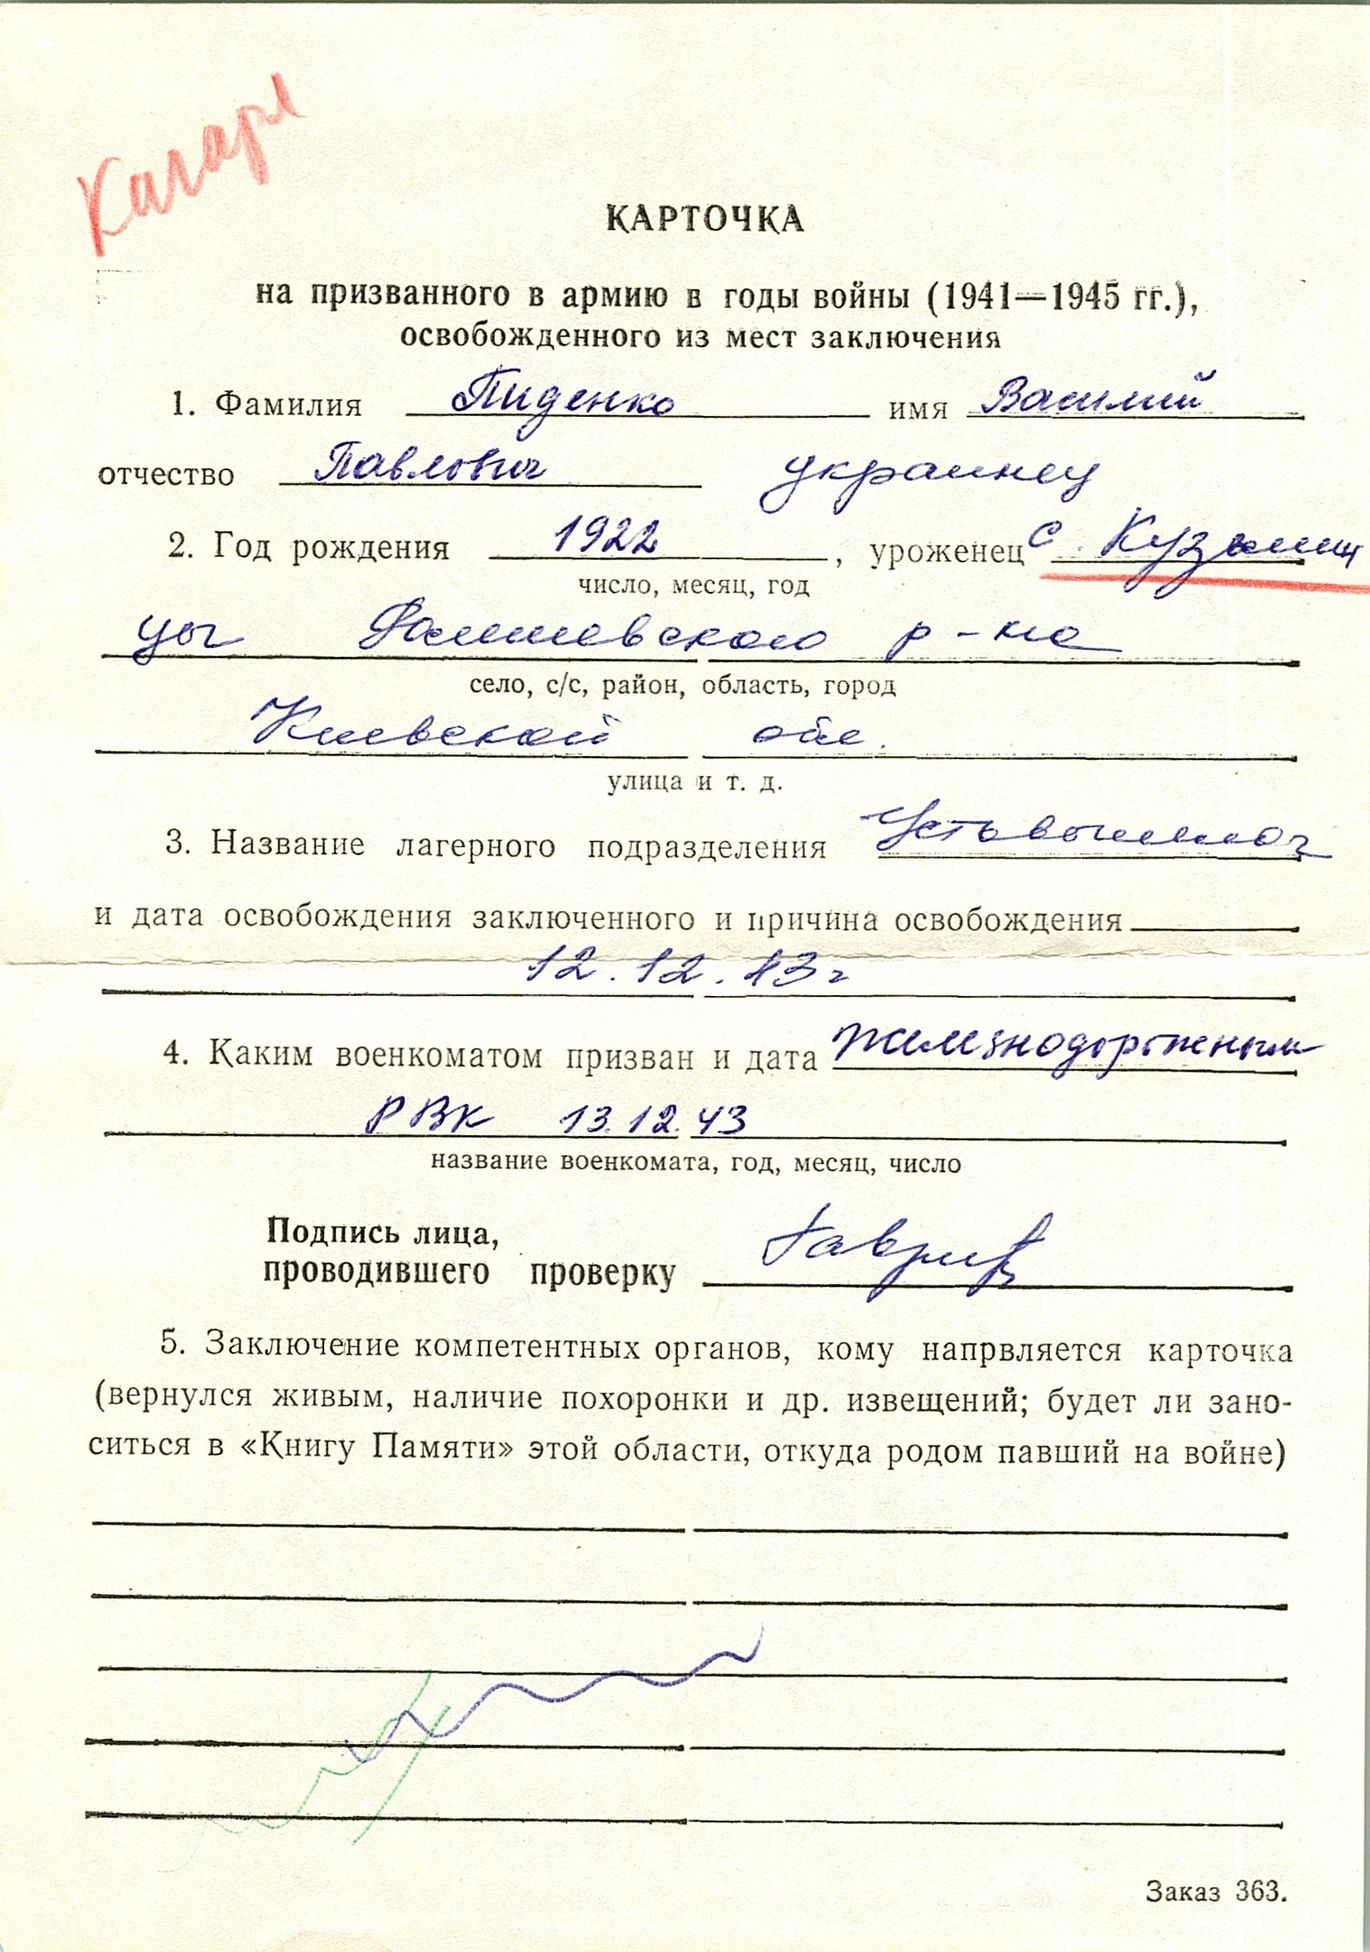 КАРТОЧКА
на призванного в армию в годы войны (1941—1945 гг.),
освобожденного из мест заключения
1. Фамилия Пиденко имя Василий
отчество Павлович украинец
2. Год рождения 1922, уроженец с. Кузьмин
число, месяц, год
цы р-на
село, с/с, район, область, город
Киевской обл.
улица и т. д.
3. Название лагерного подразделения Устьвымлаг
и дата освобождения заключенного и причина освобождения
12.12.43г
4. Каким военкоматом призван и дата Железнодорожным
РВК 13.12.43
название военкомата, год, месяц, число
Подпись лица,
проводившего проверку
5. Заключение компетентных органов, кому напрвляется карточка
(вернулся живым, наличие похоронки и др. извещений; будет ли зано-
ситься в «Книгу Памяти» этой области, откуда родом павший на войне)
Заказ 363.